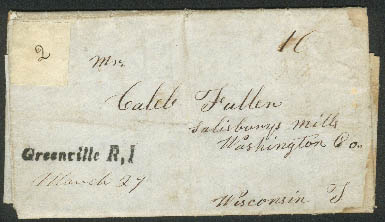 2
10
Mr.
Caleb Fuller
Salisburys Mills
Washington Co.
Greenville R,I
March 27
Wisconsin T